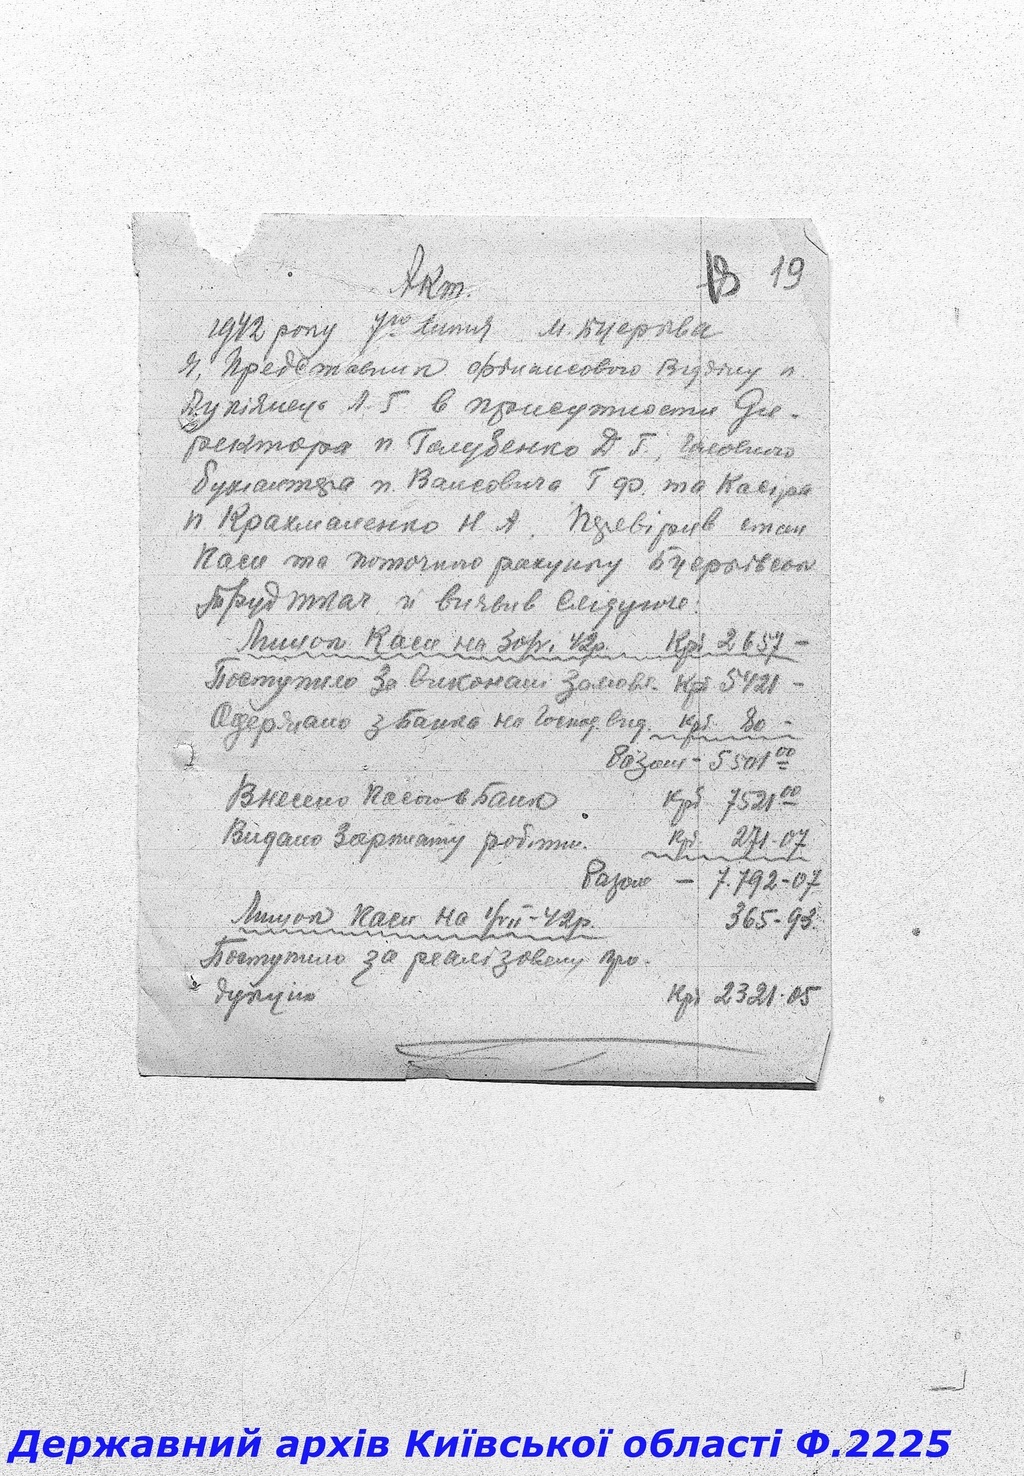 Акт.
19
1942 року 7го липня м. Біцерківа
Я, Представник фінансового Відділу п.
Л. Г в присутности Ди-
ректора п Голубенко Д Г, Головного
бухгалтера п. Вансовича Г ф. та Касіра
п Крахмаленко Н А, Перевірив стан
Каси та поточного рахунку Біцерківсь
Труд ткач, й виявив слідуюче:
Лишок Каси на 42р. Крб 2657 -
Поступило За виконані замовл. Крб 5421 -
Одержано з Банка на Господ. вид. крб. 80 -
Разом - 5501 00
Внесено Касою в Банк Крб 7521 00
Видано Зарплату робітн. крб. 271-07
Разом - 7.792-07
Лишок Каси на 1/VII-42р. 365-93.
Поступило за реалізовану про-
дукцію Крб 2321-05
Державний архів Київської області Ф.2225